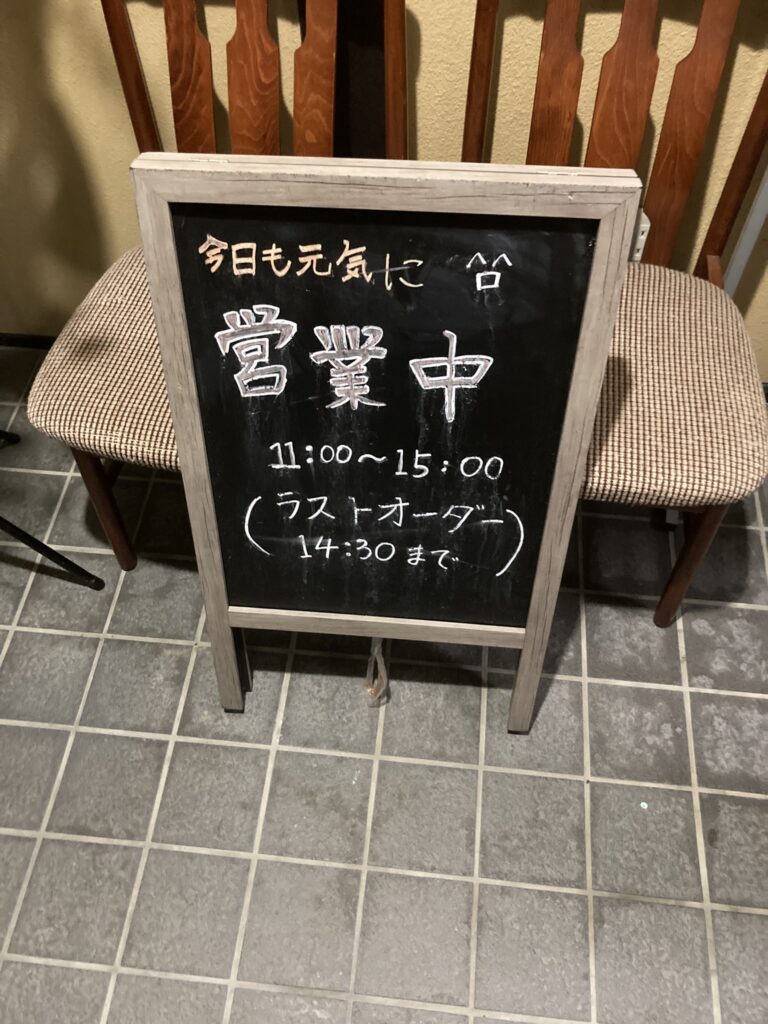 今日も元気に ^ロ^
営業中
11:00～15:00
(ラストオーダー
14:30まで)